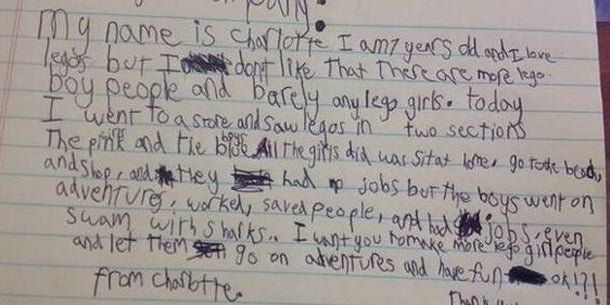 My name is Charlotte I am 7 years old and I love
legos but I don't like that There are more lego
boy people and barely any lego girls. today
I went to a store and saw legos in two sections
The pink and the blue boys All the girls did was sit at home, go to the beach,
and shop, and they had no jobs but the boys went on
adventures, worked, saved people, and had jobs, even
swam with sharks.. I want you to make more lego girl people
and let them go on adventures and have fun ok!?!
from charlotte.